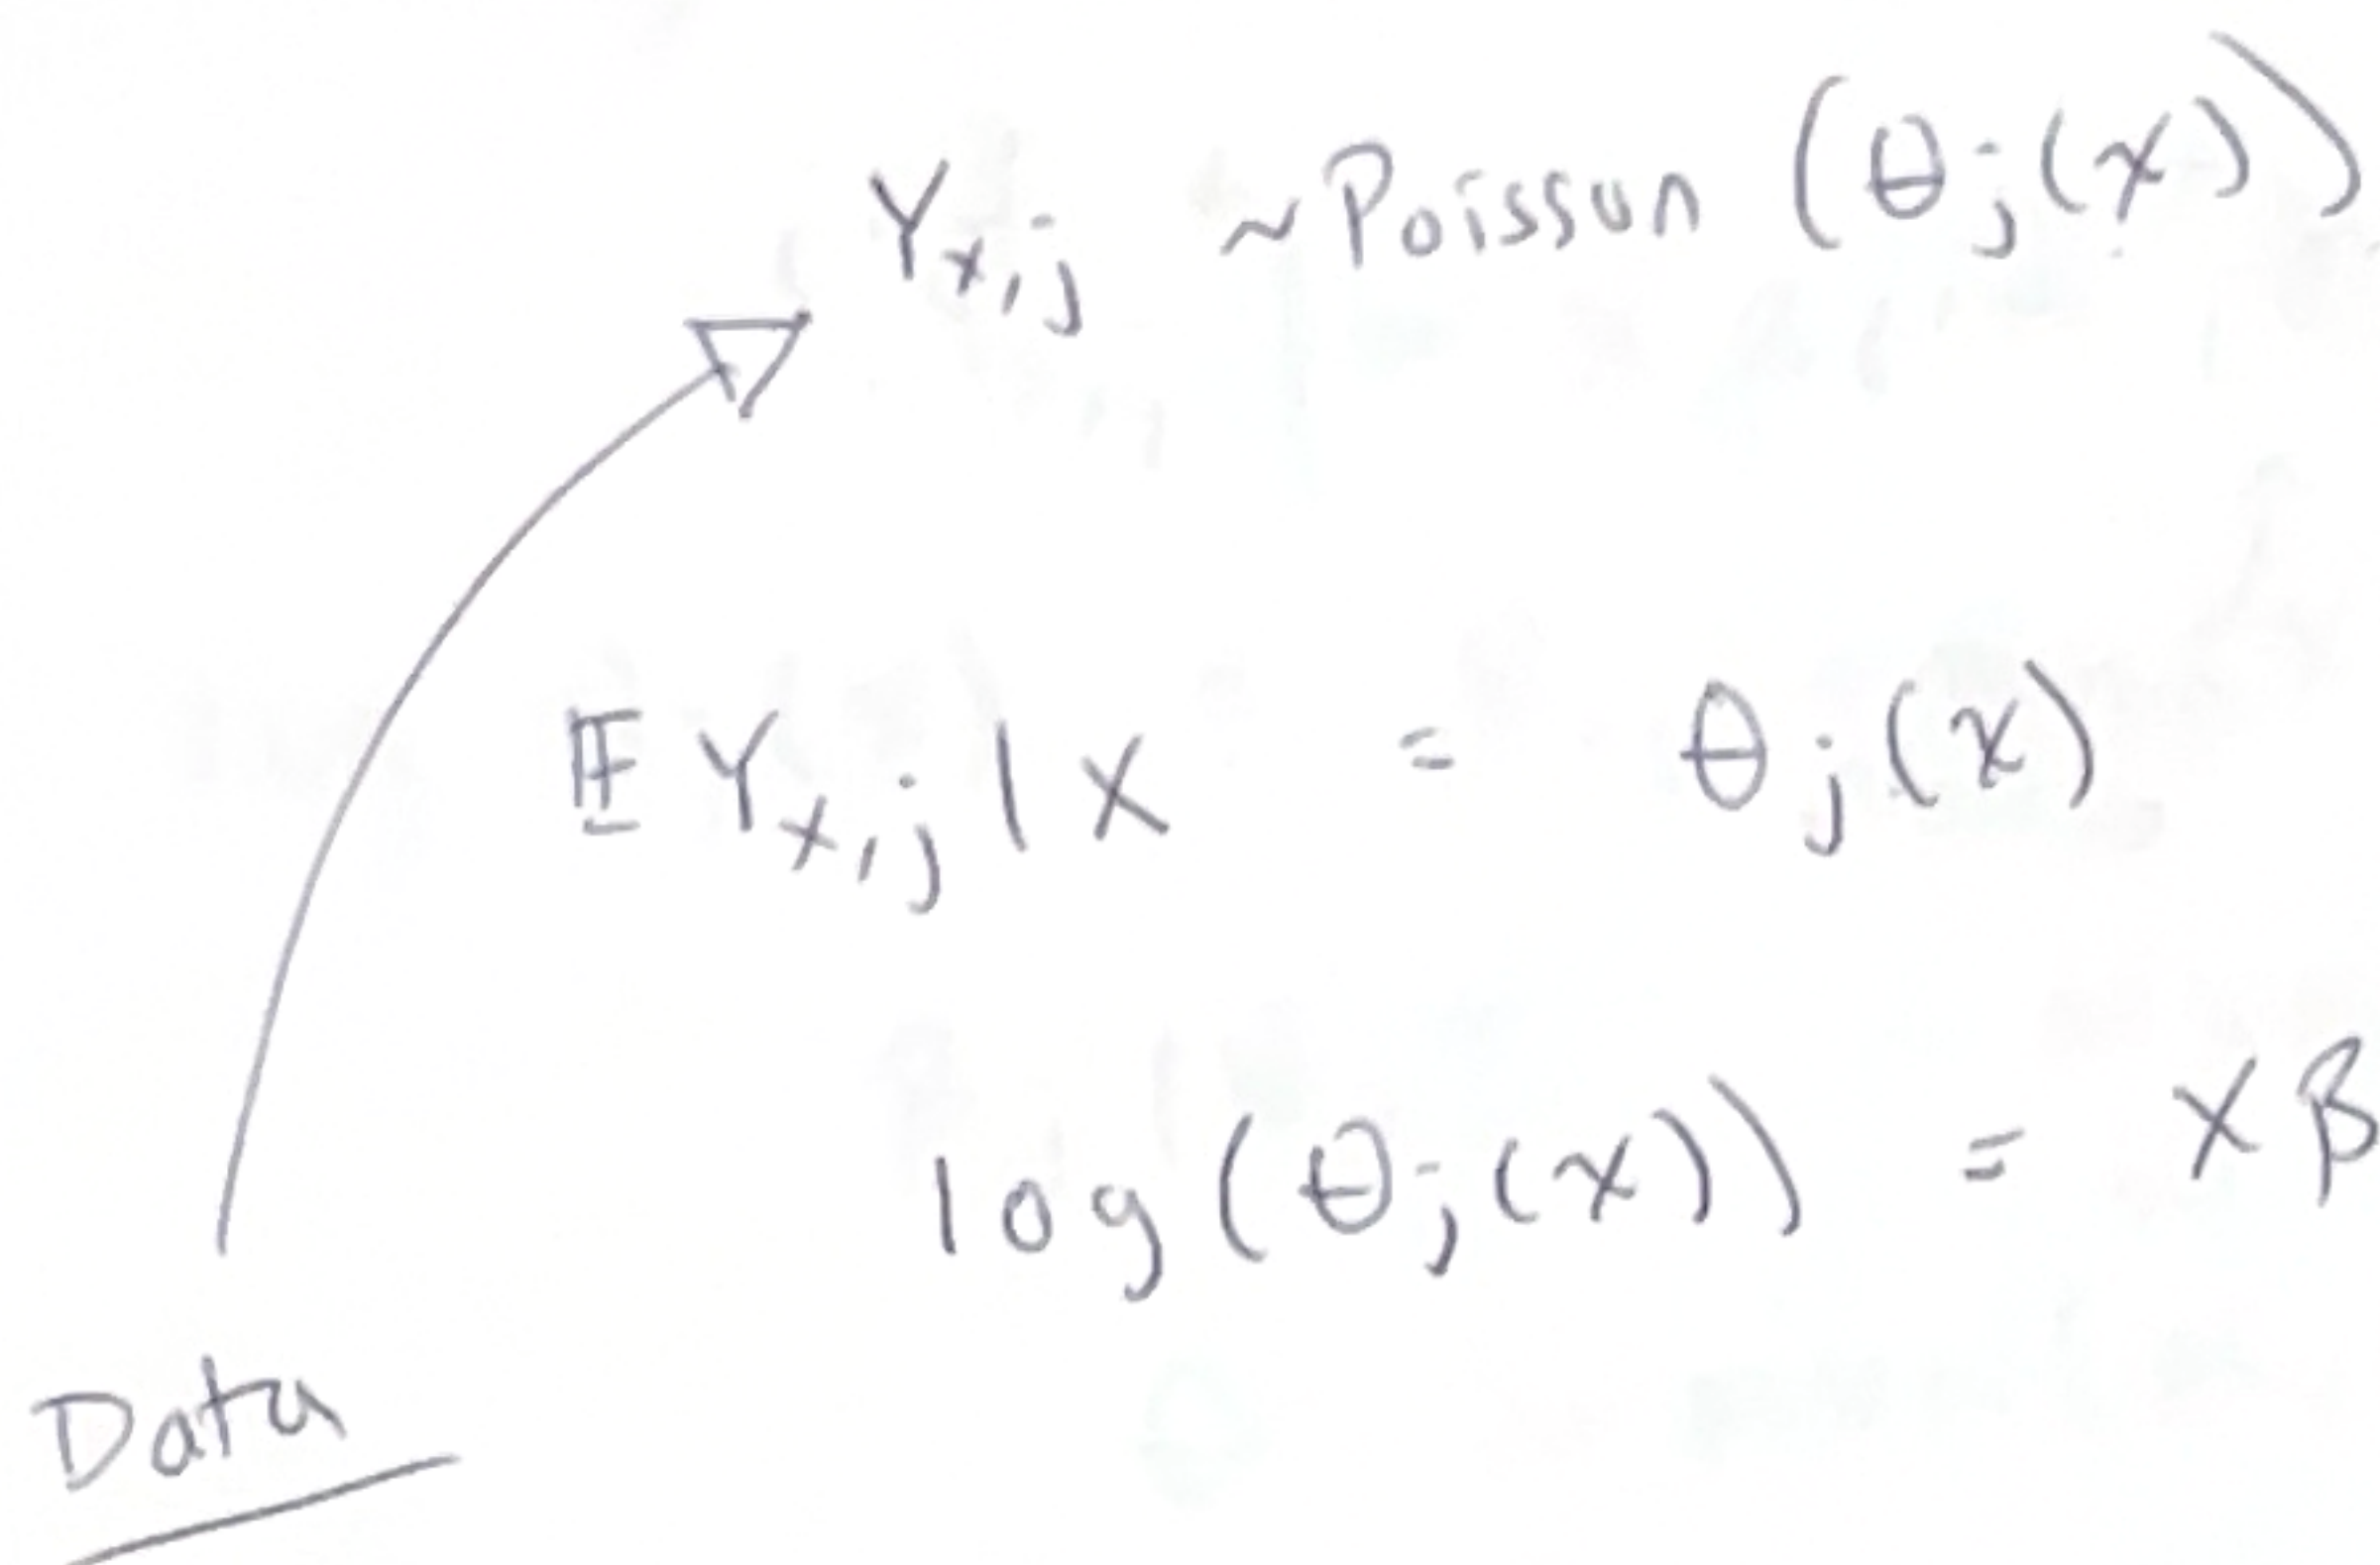 Y_{x,j} ~ Poisson (θ_j(x))
𝔼 Y_{x,j} | X = θ_j(x)
log(θ_j(x)) = Xβ
Data